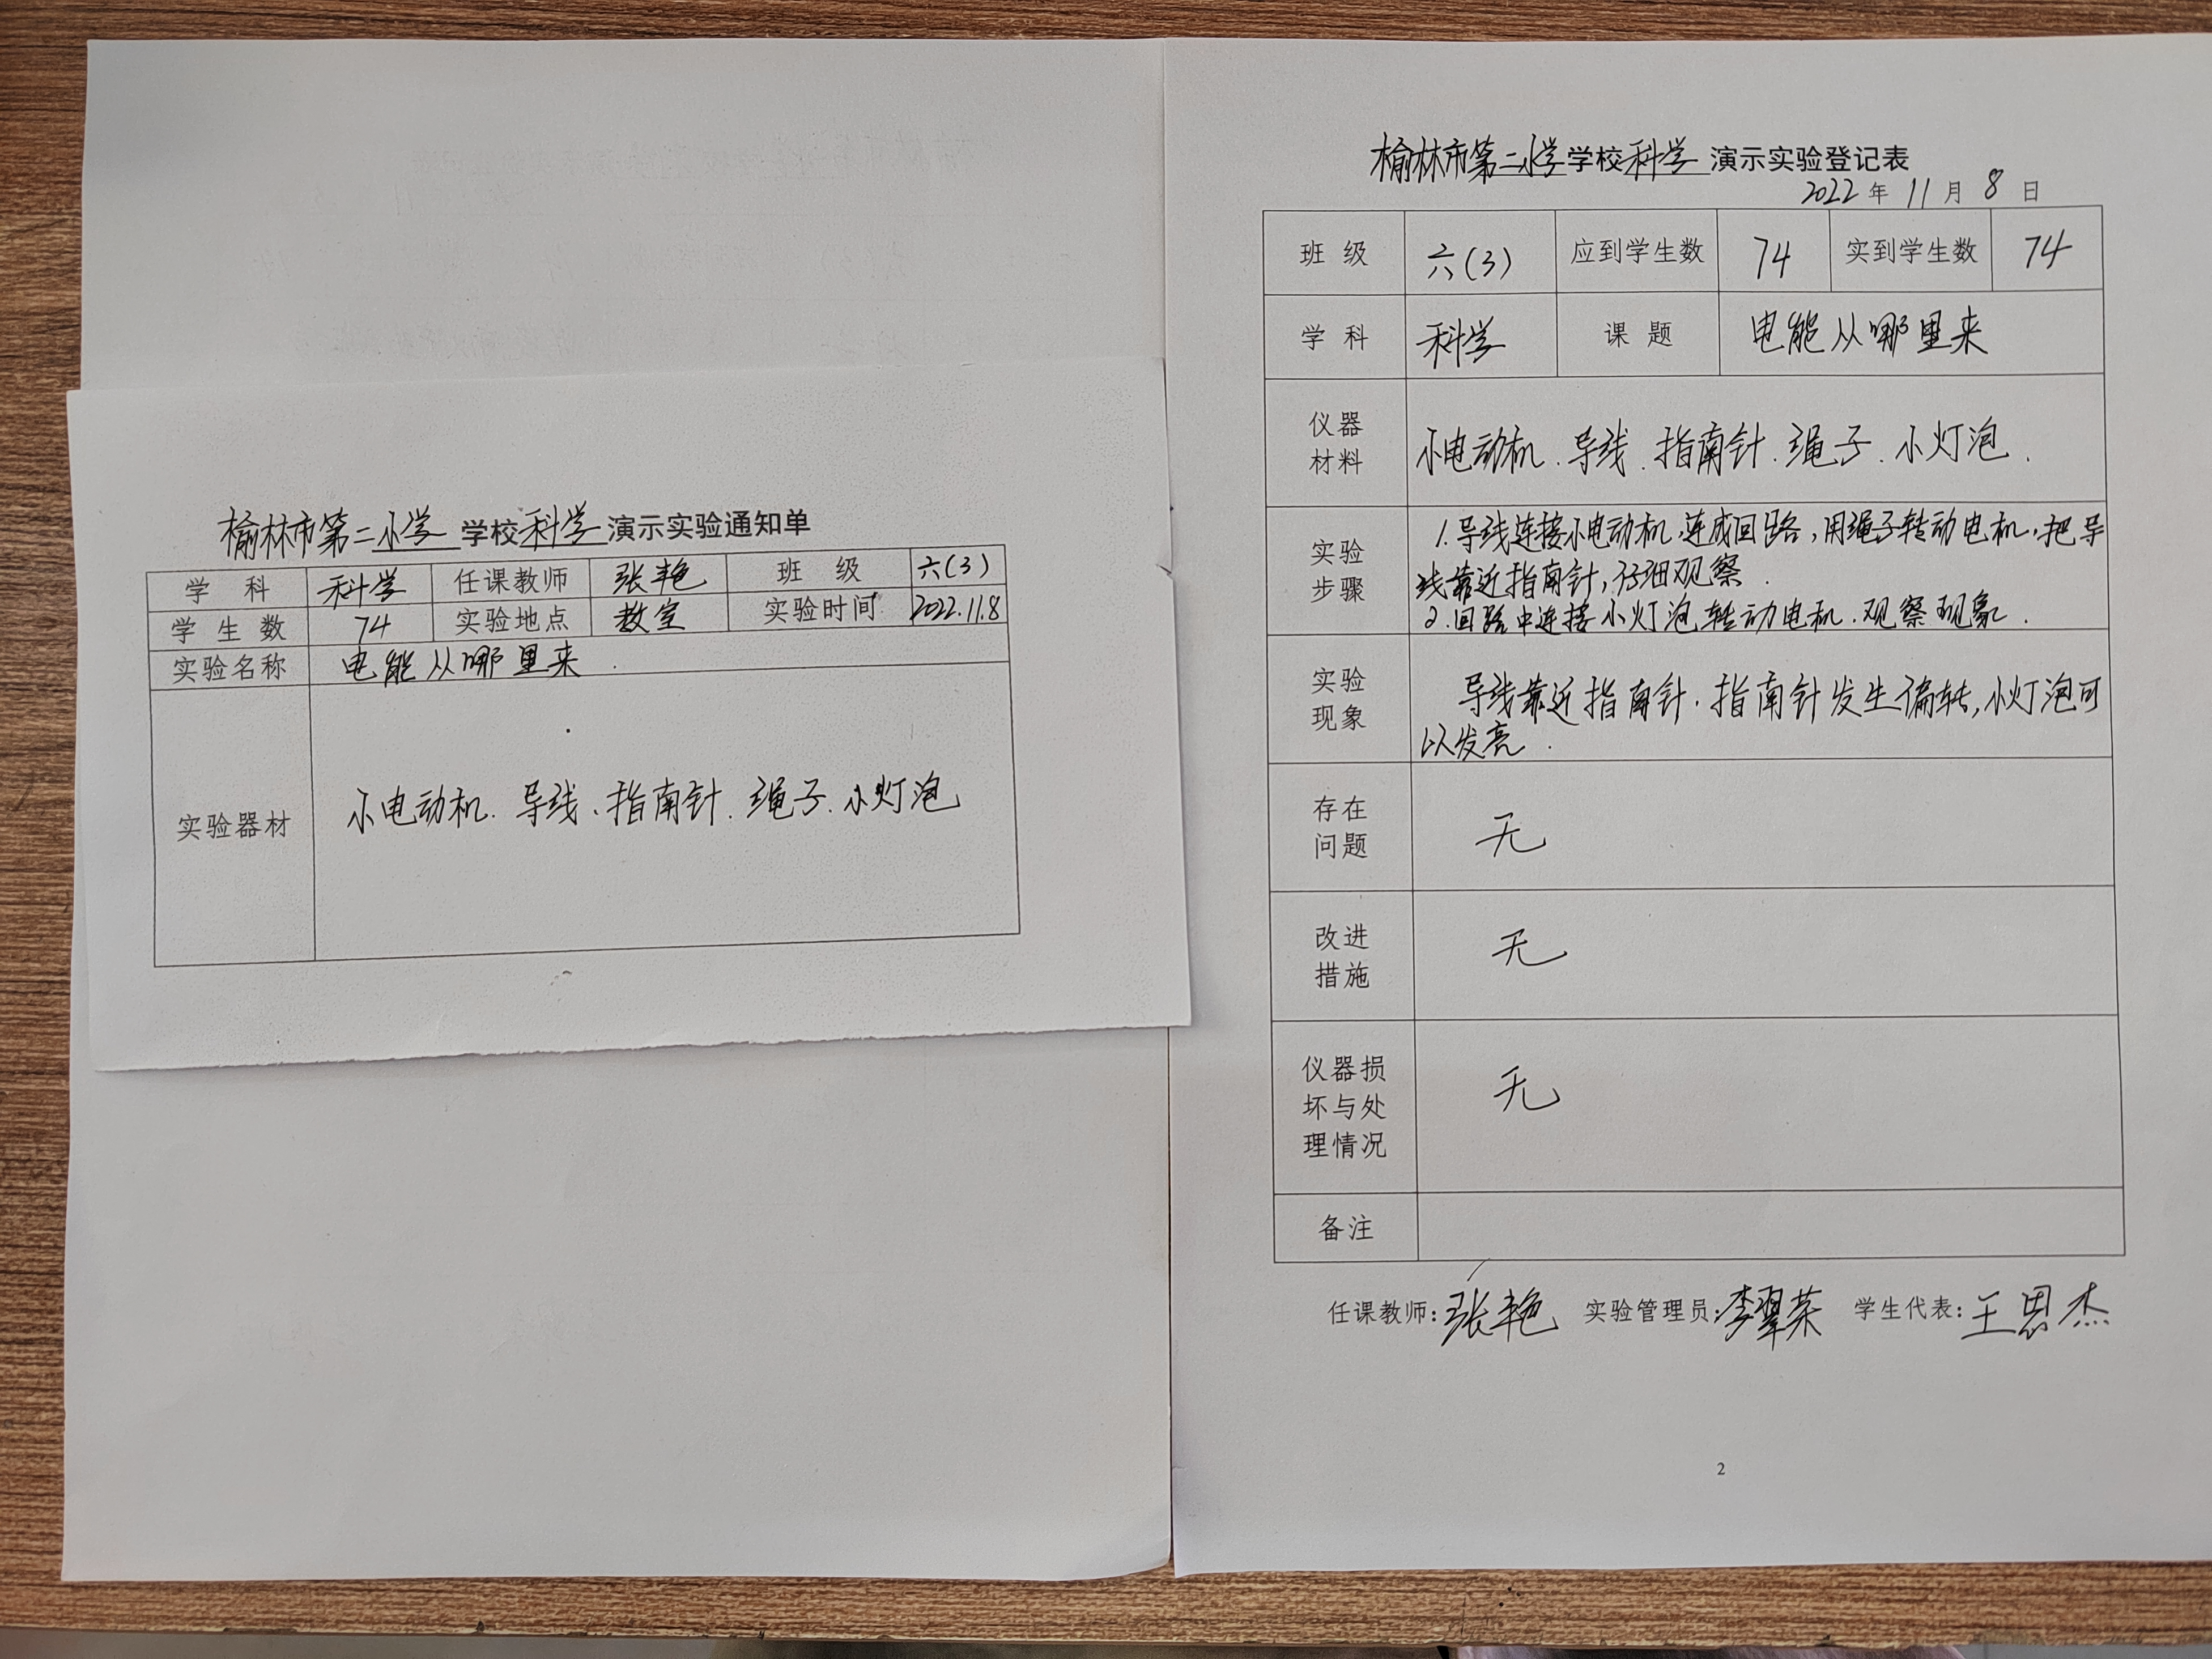 榆林市第二小学学校科学演示实验通知单
学 科 科学 任课教师 张艳 班 级 六(3)
学 生 数 74 实验地点 教室 实验时间 2022.11.8
实验名称 电能从哪里来.
实验器材 小电动机.导线、指南针.绳子.小灯泡
榆林市第二小学学校科学演示实验登记表
2022年11月8日
班 级 六(3) 应到学生数 74 实到学生数 74
学 科 科学 课 题 电能从哪里来
仪器
材料
小电动机.导线.指南针.绳子.小灯泡.
实验
步骤
1.导线连接小电动机,连成回路,用绳子转动电机.把导
线靠近指南针,仔细观察.
2.回路中连接小灯泡转动电机.观察现象.
实验
现象
导线靠近指南针.指南针发生偏转,小灯泡可
以发亮.
存在
问题
无
改进
措施
无
仪器损
坏与处
理情况
无
备注
任课教师:张艳 实验管理员:李翠荣 学生代表:王思杰
2